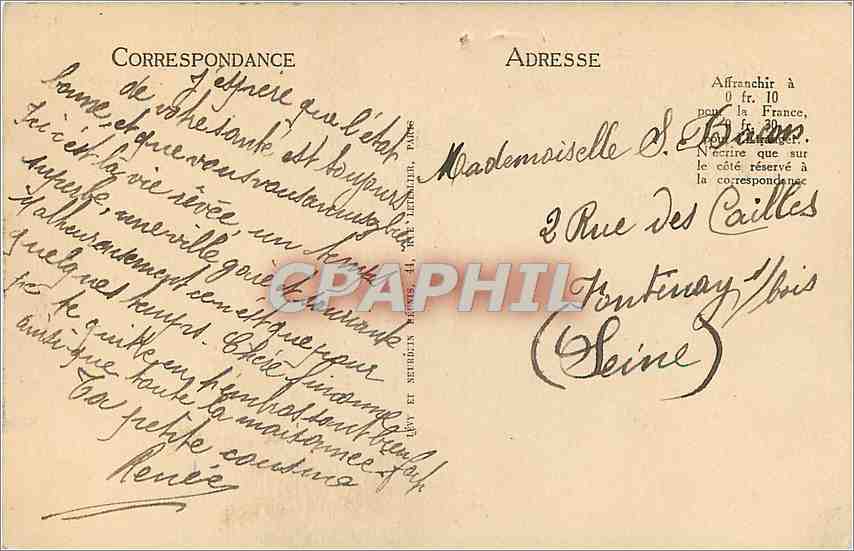 CORRESPONDANCE
J'espère que l'état
de votre santé est toujours
bonne, et que vous vous amusez bien
Ici c'est la vie rêvée, un temps
superbe, une ville gaie et
Malheureusement ce n'est que pour
quelques temps. Chère
je te quitte en t'embrassant bien fort
ainsi que toute la maisonnée.
Ta petite cousine
Renée
LÉVY ET NEURDEIN RÉUNIS, 44, RUE LETELLIER, PARIS
ADRESSE
Affranchir à
0 fr. 10
pour la France,
fr. 30
pour l'Étranger.
N'écrire que sur
le côté réservé à
la correspondance
Mademoiselle S.
2 Rue des Cailles
Fontenay s/bois
(Seine)
CPAPHIL